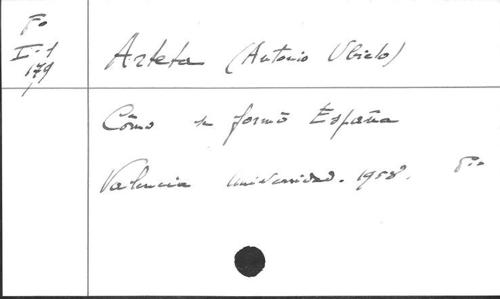 Fo
I-1
179
Arteta (Antonio Ubieto)
Cómo se formó España
Valencia Universidad. 1958. 8º